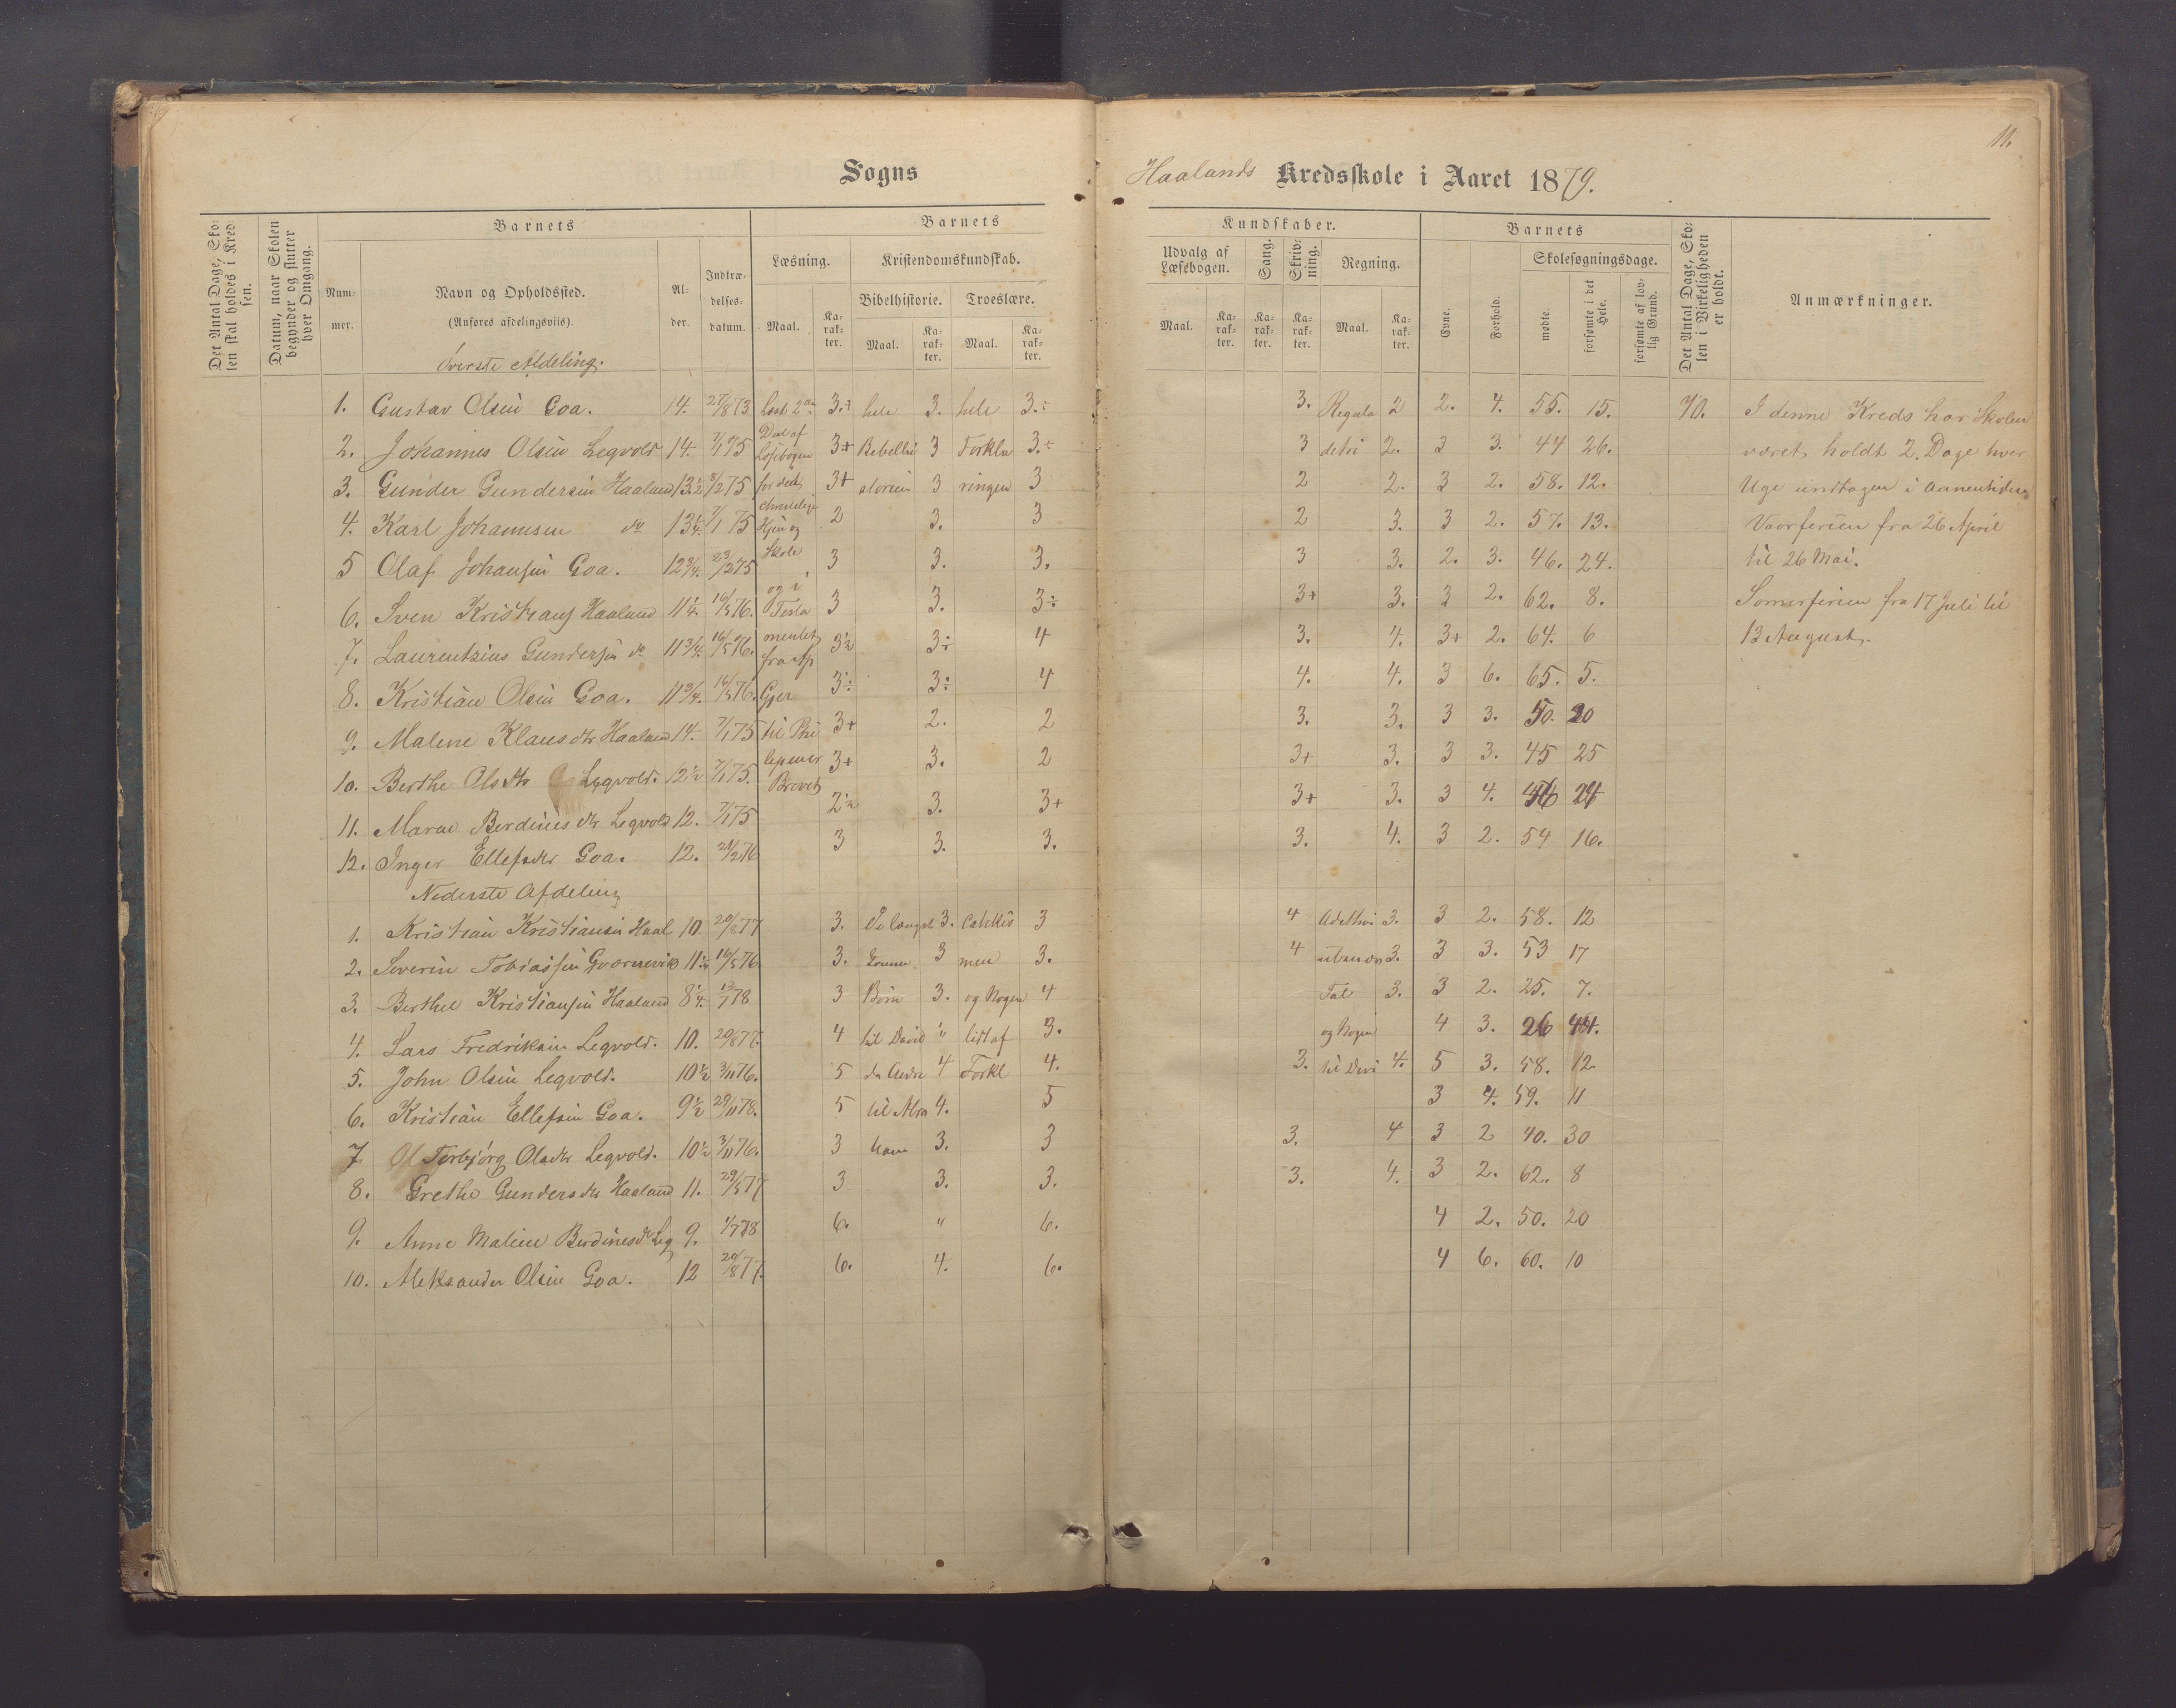 11.
Sogns
Haalands Kredsskole i Aaret 1879.
Det Antal Dage, Skolen skal holdes i Kredsen.
Datum, naar Skolen begynder og slutter hver Omgang.
Barnets
Nummer.
Navn og Opholdssted.
(Anføres afdelingsviis).
Alder.
Indtrædelsesdatum.
Barnets
Læsning.
Maal.
Karakter.
Kristendomskundskab.
Bibelhistorie.
Maal.
Karakter.
Troeslære.
Maal.
Karakter.
Kundskaber.
Udvalg af Læsebogen.
Maal.
Karakter.
Sang.
Karakter.
Skrivning.
Karakter.
Regning.
Maal.
Karakter.
Barnets
Evne.
Forhold.
Skolesøgningsdage.
mødte.
forsømte i det Hele.
forsømte af lovlig Grund.
Det Antal Dage, Skolen i Virkeligheden er holdt.
Anmærkninger.
Øverste Afdeling.
1. Gustav Olsen Goa. 14. 27/8 73 Læst 2den 3.÷ hele 3. hele 3.÷ 3. Regula 2 2. 4. 55. 15. 70. I denne Kreds har Skolen
2. Johannes Olsen Legvold 14. 7/1 75 Deel af Læsebogen 3+ Bibelhi 3 Forkla 3.÷ 3 detri 2. 3 3. 44 26. været holdt 2. Dage hver
3. Gunder Gundersen Haaland 13 1/2 8/2 75 for det 3+ storien 3 ringen 3 2 2. 3 2. 58. 12. Uge undtagen i Aanentiden
4. Karl Johannesen do 13 1/4. 7/1 75 christelige Hjem og 2 3. 3 2 3. 3 2. 57. 13. Vaarferien fra 26 April
5 Olaf Johansen Goa. 12 3/4. 23/2 75 Skole 3 3. 3. 3 3. 2. 3. 46. 24. til 26 Mai.
6. Sven Kristians Haaland 11 1/4. 16/5 76. og i Testa 3 3. 3÷ 3+ 3. 3 2. 62. 8. Somerferien fra 17 Juli til
7. Laurentzius Gundersen do 11 3/4. 16/5 76. mentet fra Ap 3 1/2 3÷ 4 3. 4. 3+ 2. 64. 6 13 August.
8. Kristian Olsen Goa. 11 3/4. 16/5 76. Gjer 3÷ 3÷ 4 4. 4. 3 6. 65. 5.
9. Malene Klausdtr Haaland 14. 7/1 75 til Phi 3+ 2. 2 3. 3. 3 3. 50. 20
10. Berthe Olsdtr Legvold. 12 1/2 7/1 75. lipenser Brevet 3+ 3. 2 3+ 3. 3 3. 45 25
11. Maren Berdinesdtr Legvold 12. 7/1 75 2 1/2 3. 3+ 3+ 3. 3 4. 46 24
12. Inger Ellefsdtr Goa. 12. 28/2 76 3 3. 3. 3. 4. 3 2. 54 16.
Nederste Afdeling
1. Kristian Kristiansen Haal 10. 20/8 77 3. De længst 3. Catekis 3 4 3. 3 2. 58. 12
2. Severin Tobiassen 11 1/4 16/5 76. 3. 3 men 3. 4 3. 3 3. 53 17
3. Berthel Kristiansen Haaland 8 1/4. 12/1 78 3 Børn 3. og Nogen 4 Tal 3. 3 2. 25. 7.
4. Lars Fredriksen Legvold. 10. 20/8 77. 4 til David " lidt af 3. og Nogen 4 3. 26 44.
5. John Olsen Legvold. 10 1/2 3/11 76. 5 de Andre 4 Forkl 4. 3. til Divi 4. 5 3. 58. 12
6. Kristian Ellefsen Goa. 9 1/2 29/11 78. 5 til Abra 4. 5 3 4. 59. 11
7 Torbjørg Olsdtr Legvold. 10 1/2 3/11 76. 3 ham 3. 3 3. 4 3 2 40. 30
8. Grethe Gundersdtr Haaland 11. 29/5 77 3 3. 3. 3. 4. 3 2. 62. 8
9. Anne Malene Berdinesdtr Leg 9. 1/7 78 6. " 6. 4 2. 50. 20
10. Aleksander Olsen Goa. 12 20/8 77. 6. 4. 6. 4 6. 60. 10